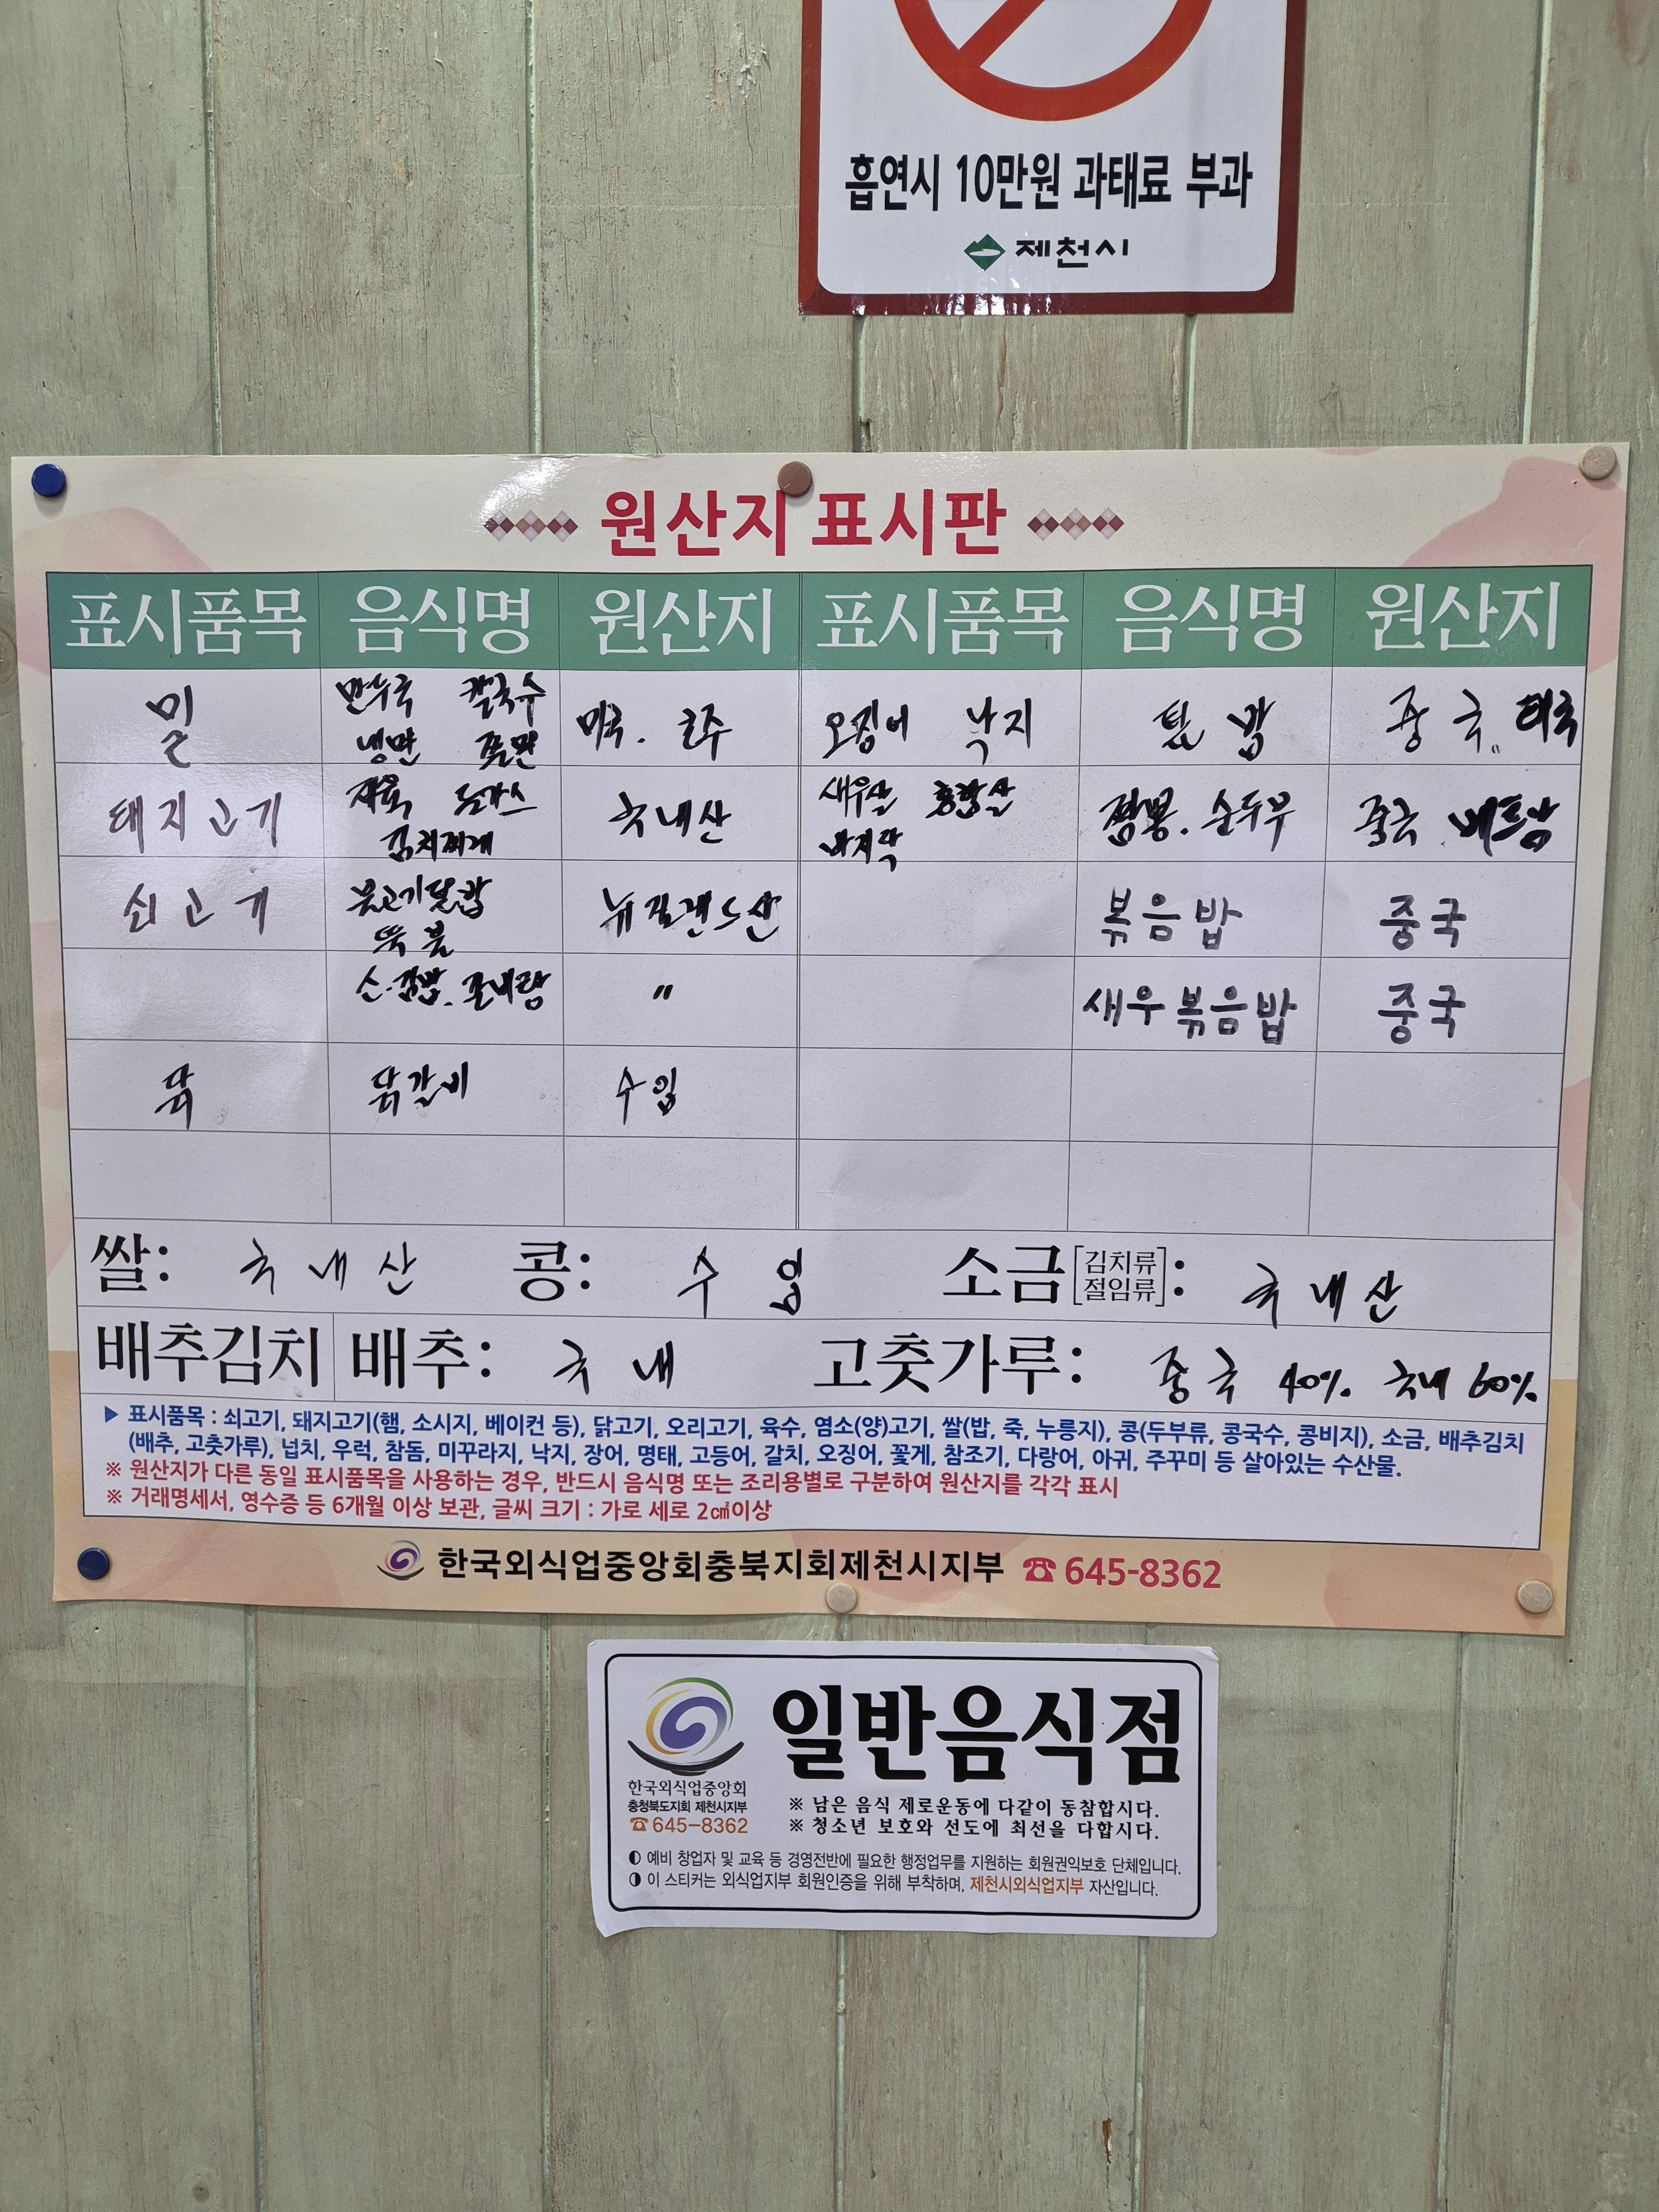 흡연시 10만원 과태료 부과
제천시
원산지 표시판
표시품목 음식명 원산지 표시품목 음식명 원산지
밀 만두국 칼국수 냉면 쫄면 미국. 호주 오징어 낙지 덮밥 중국 태국
돼지고기 제육 돈가스 김치찌개 국내산 새우살 홍합살 바지락 짬뽕. 순두부 중국 베트남
쇠고기 불고기덮밥 뚝불 뉴질랜드산 볶음밥 중국
소.김밥. " 새우볶음밥 중국
닭 닭갈비 수입
쌀: 국내산 콩: 수입 소금[김치류 절임류]: 국내산
배추김치 배추: 국내 고춧가루: 중국 40%. 국내 60%.
▶ 표시품목 : 쇠고기, 돼지고기(햄, 소시지, 베이컨 등), 닭고기, 오리고기, 육수, 염소(양)고기, 쌀(밥, 죽, 누룽지), 콩(두부류, 콩국수, 콩비지), 소금, 배추김치
(배추, 고춧가루), 넙치, 우럭, 참돔, 미꾸라지, 낙지, 장어, 명태, 고등어, 갈치, 오징어, 꽃게, 참조기, 다랑어, 아귀, 주꾸미 등 살아있는 수산물.
※ 원산지가 다른 동일 표시품목을 사용하는 경우, 반드시 음식명 또는 조리용별로 구분하여 원산지를 각각 표시
※ 거래명세서, 영수증 등 6개월 이상 보관, 글씨 크기 : 가로 세로 2㎠이상
한국외식업중앙회충북지회제천시지부 ☎645-8362
일반음식점
한국외식업중앙회
충청북도지회 제천시지부
☎645-8362
※ 남은 음식 제로운동에 다같이 동참합시다.
※ 청소년 보호와 선도에 최선을 다합시다.
◐ 예비 창업자 및 교육 등 경영전반에 필요한 행정업무를 지원하는 회원권익보호 단체입니다.
◑ 이 스티커는 외식업지부 회원인증을 위해 부착하며, 제천시외식업지부 자산입니다.